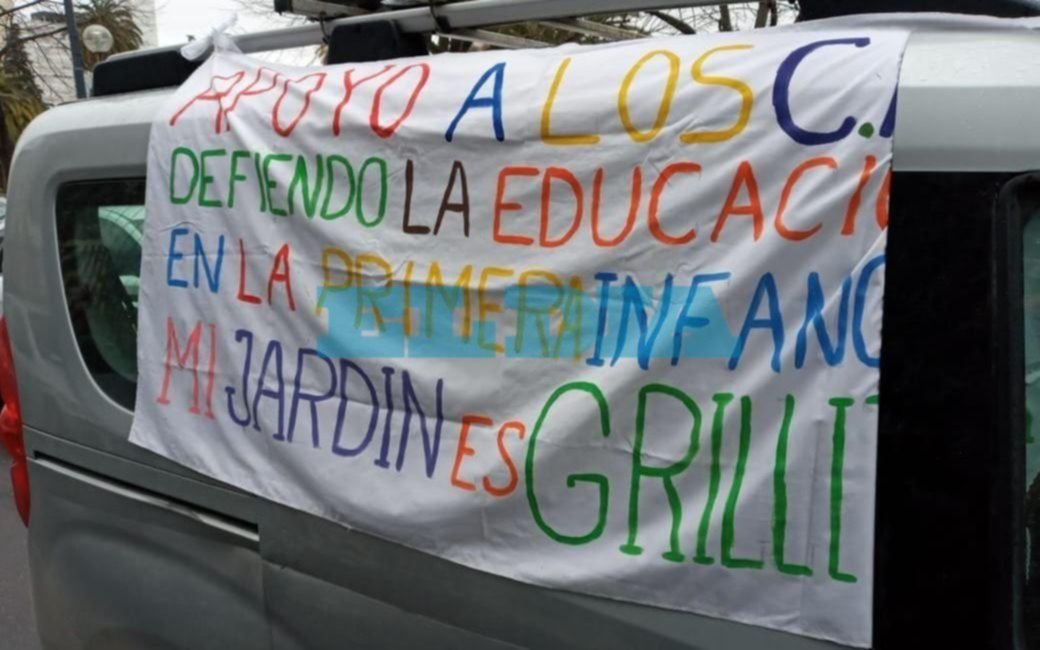 APOYO A LOS C.A
DEFIENDO LA EDUCACIÓ
EN LA PRIMERA INFANC
MI JARDIN ES GRILLIT